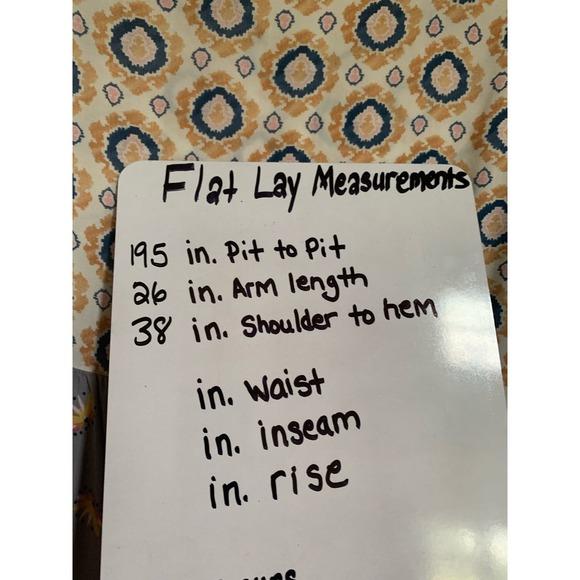 Flat Lay Measurements
195 in. Pit to Pit
26 in. Arm length
38 in. Shoulder to hem
in. Waist
in. inseam
in. rise